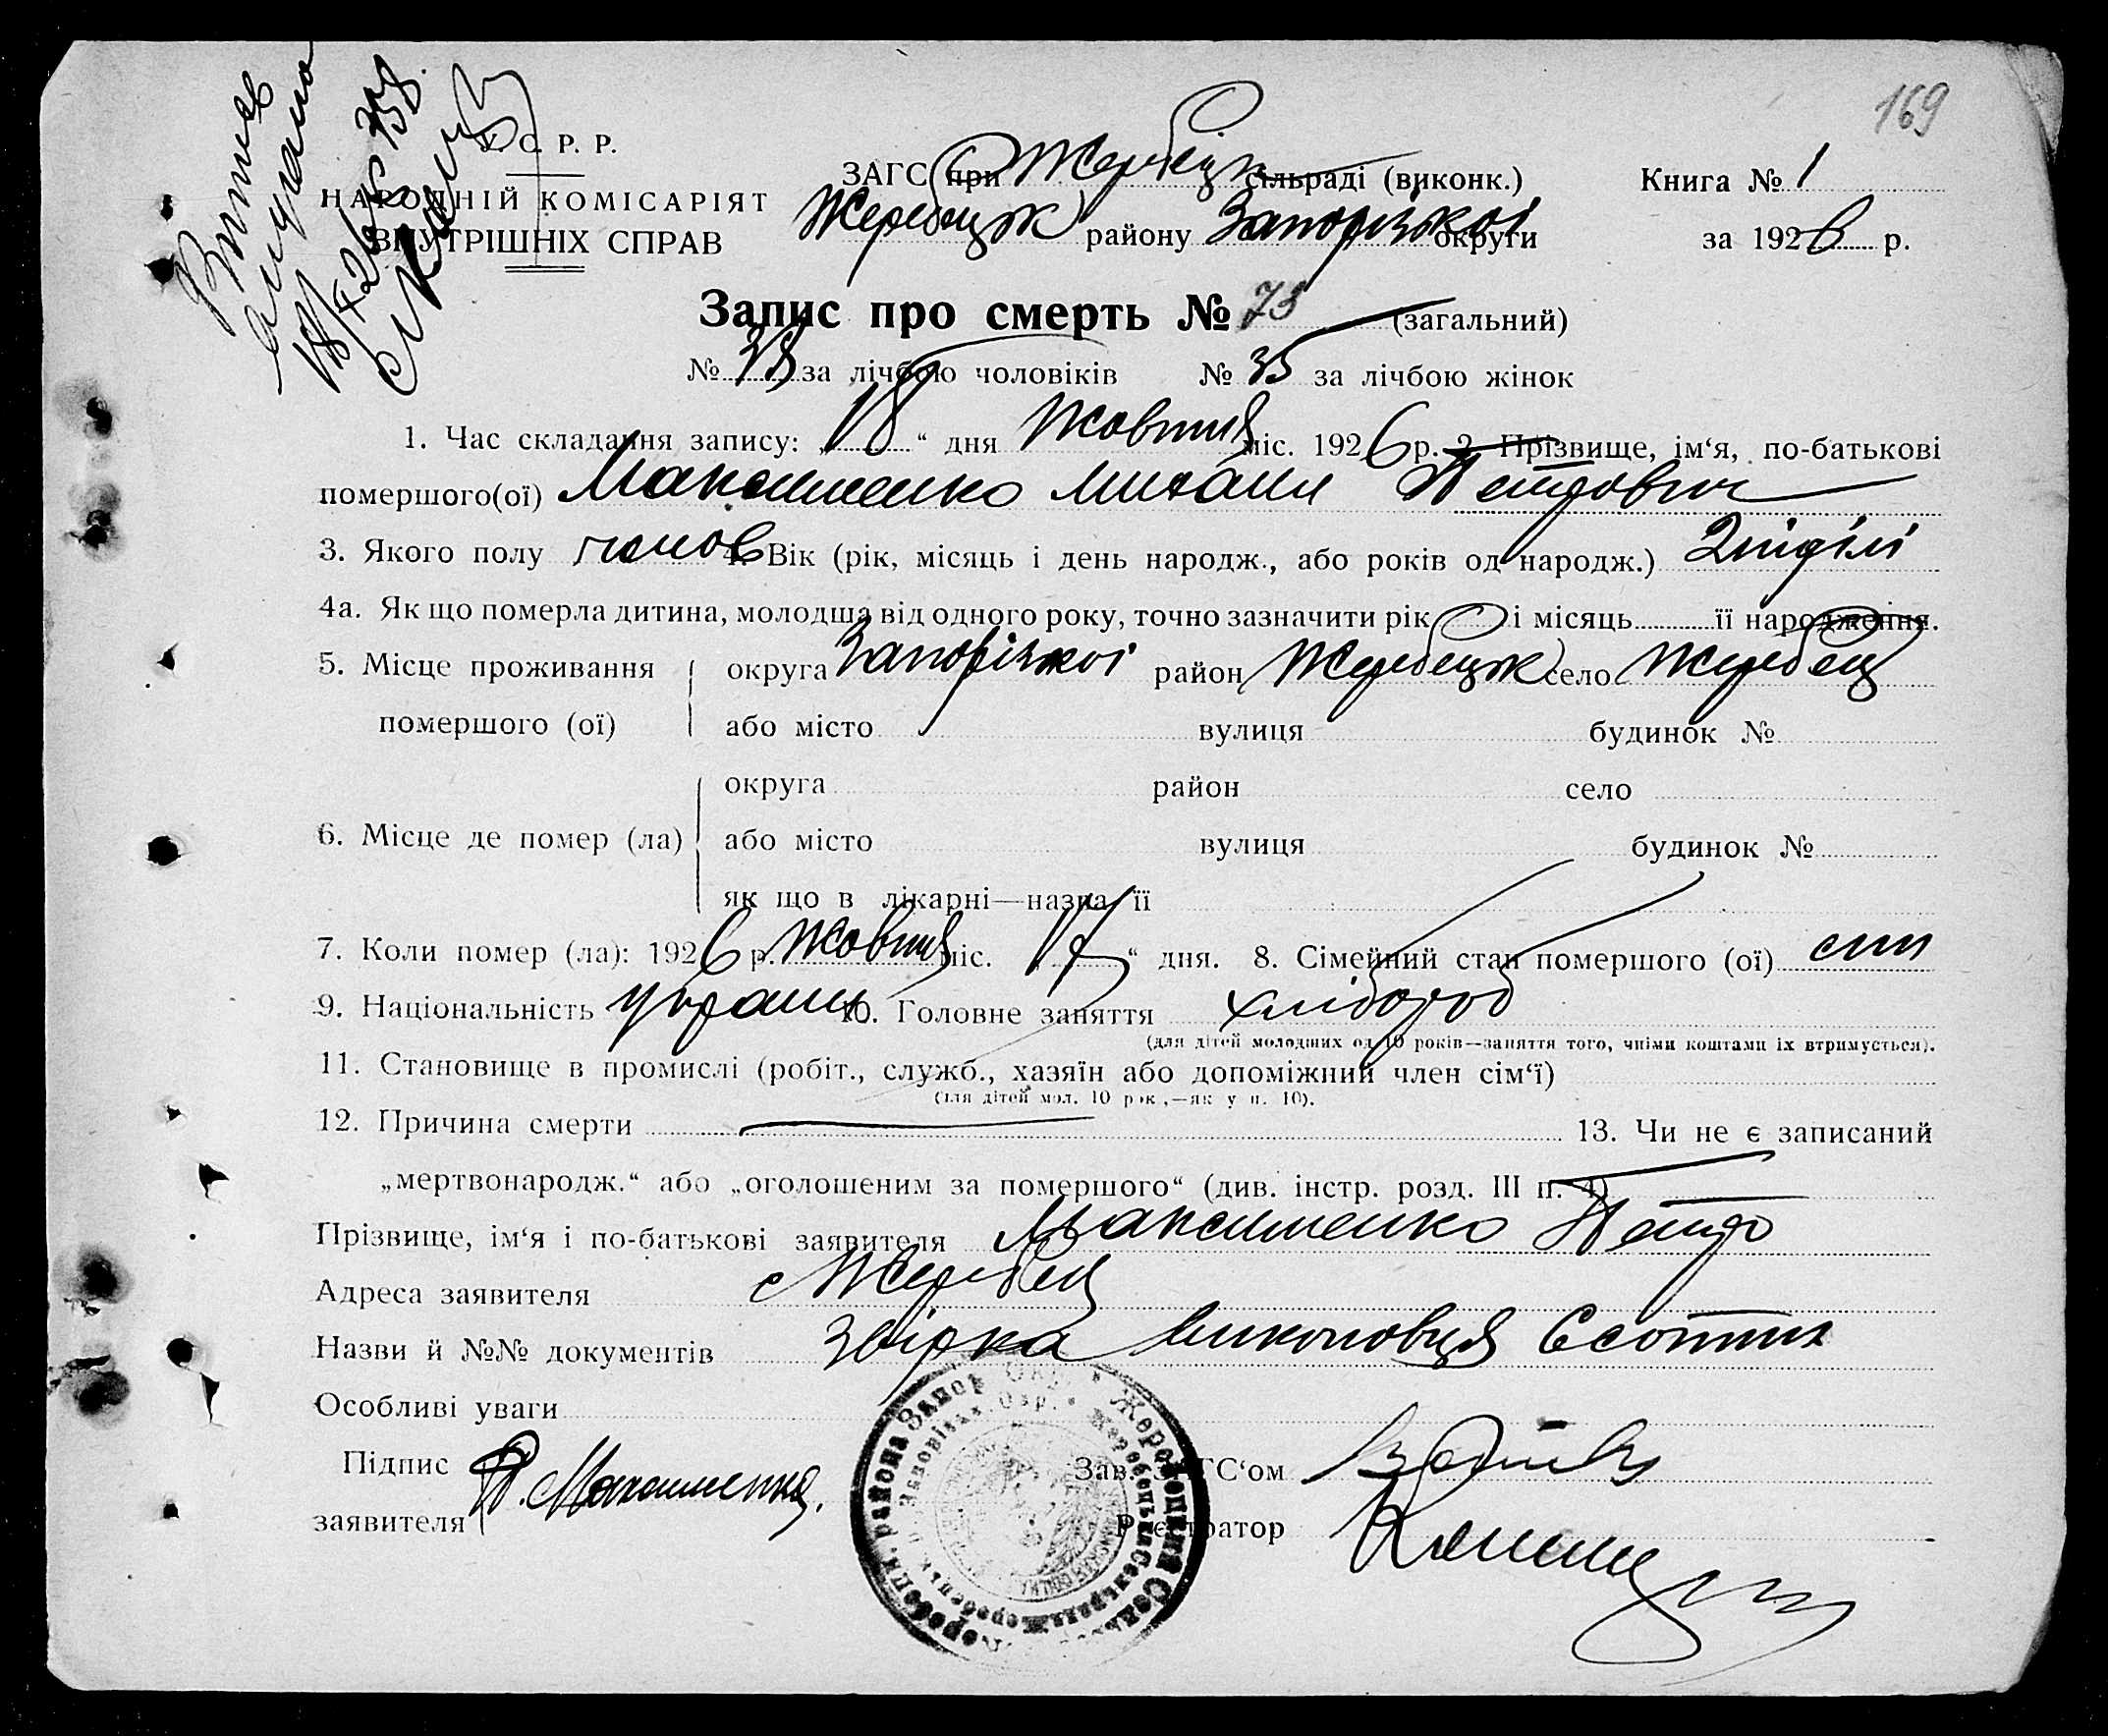 169
У. С. Р. Р.
НАРОДНІЙ КОМІСАРІЯТ
ВНУТРІШНІХ СПРАВ
ЗАГС при Жеребецьк сільраді (виконк.)
Жеребецьк району Запорізької округи
Книга № 1
за 1926 р.
Запис про смерть № 73 (загальний)
№ 38 за лічбою чоловіків № 35 за лічбою жінок
1. Час складання запису: „18“ дня Жовтня міс. 1926 р. 2. Прізвище, ім‘я, по-батькові
помершого(ої) Максименко Михаил Петрович
3. Якого полу чолов 4. Вік (рік, місяць і день народж., або років од народж.) 2 неділі
4а. Як що померла дитина, молодша від одного року, точно зазначити рік і місяць її народження.
5. Місце проживання помершого (ої) округа Запорізької район Жеребецьк село Жеребець
або місто вулиця будинок №
6. Місце де помер (ла) округа район село
або місто вулиця будинок №
як що в лікарні—назва її
7. Коли помер (ла): 1926 р. Жовтня міс. „17“ дня. 8. Сімейний стан помершого (ої) син
9. Національність украин 10. Головне заняття хлібороб
(для дітей молодших од 10 років—заняття того, чиїми коштами їх втримується).
11. Становище в промислі (робіт., служб., хазяїн або допоміжний член сім‘ї)
(для дітей мол. 10 рок.,—як у п. 10).
12. Причина смерти 13. Чи не є записаний
„мертвонародж.“ або „оголошеним за помершого“ (див. інстр. розд. III п. 4)
Прізвище, ім‘я і по-батькові заявителя Максименко Петро
Адреса заявителя с Жеребец
Назви й №№ документів Звірка виконовця
Особливі уваги
Підпис заявителя П. Максименко.
Зав. ЗАГС‘ом
Реєстратор